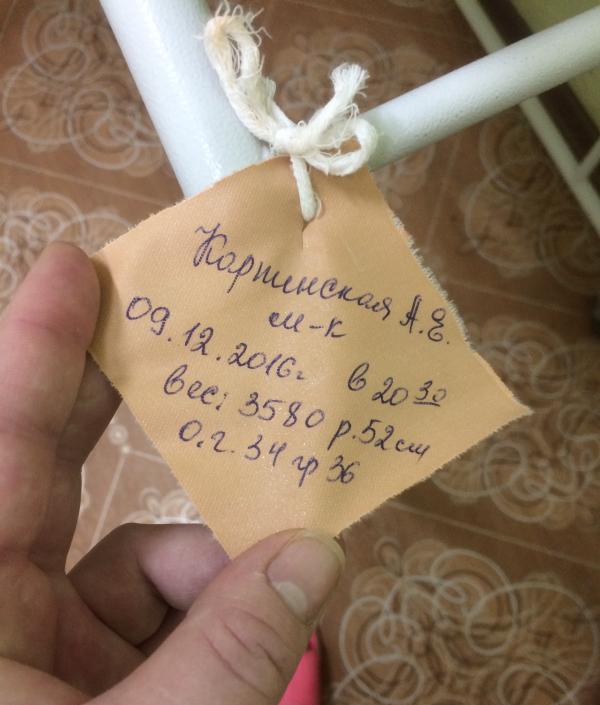 Картинская А.Е.
м-к
09.12.2016г в 20 30
вес: 3580 р.52см
О.г. 34 гр 36